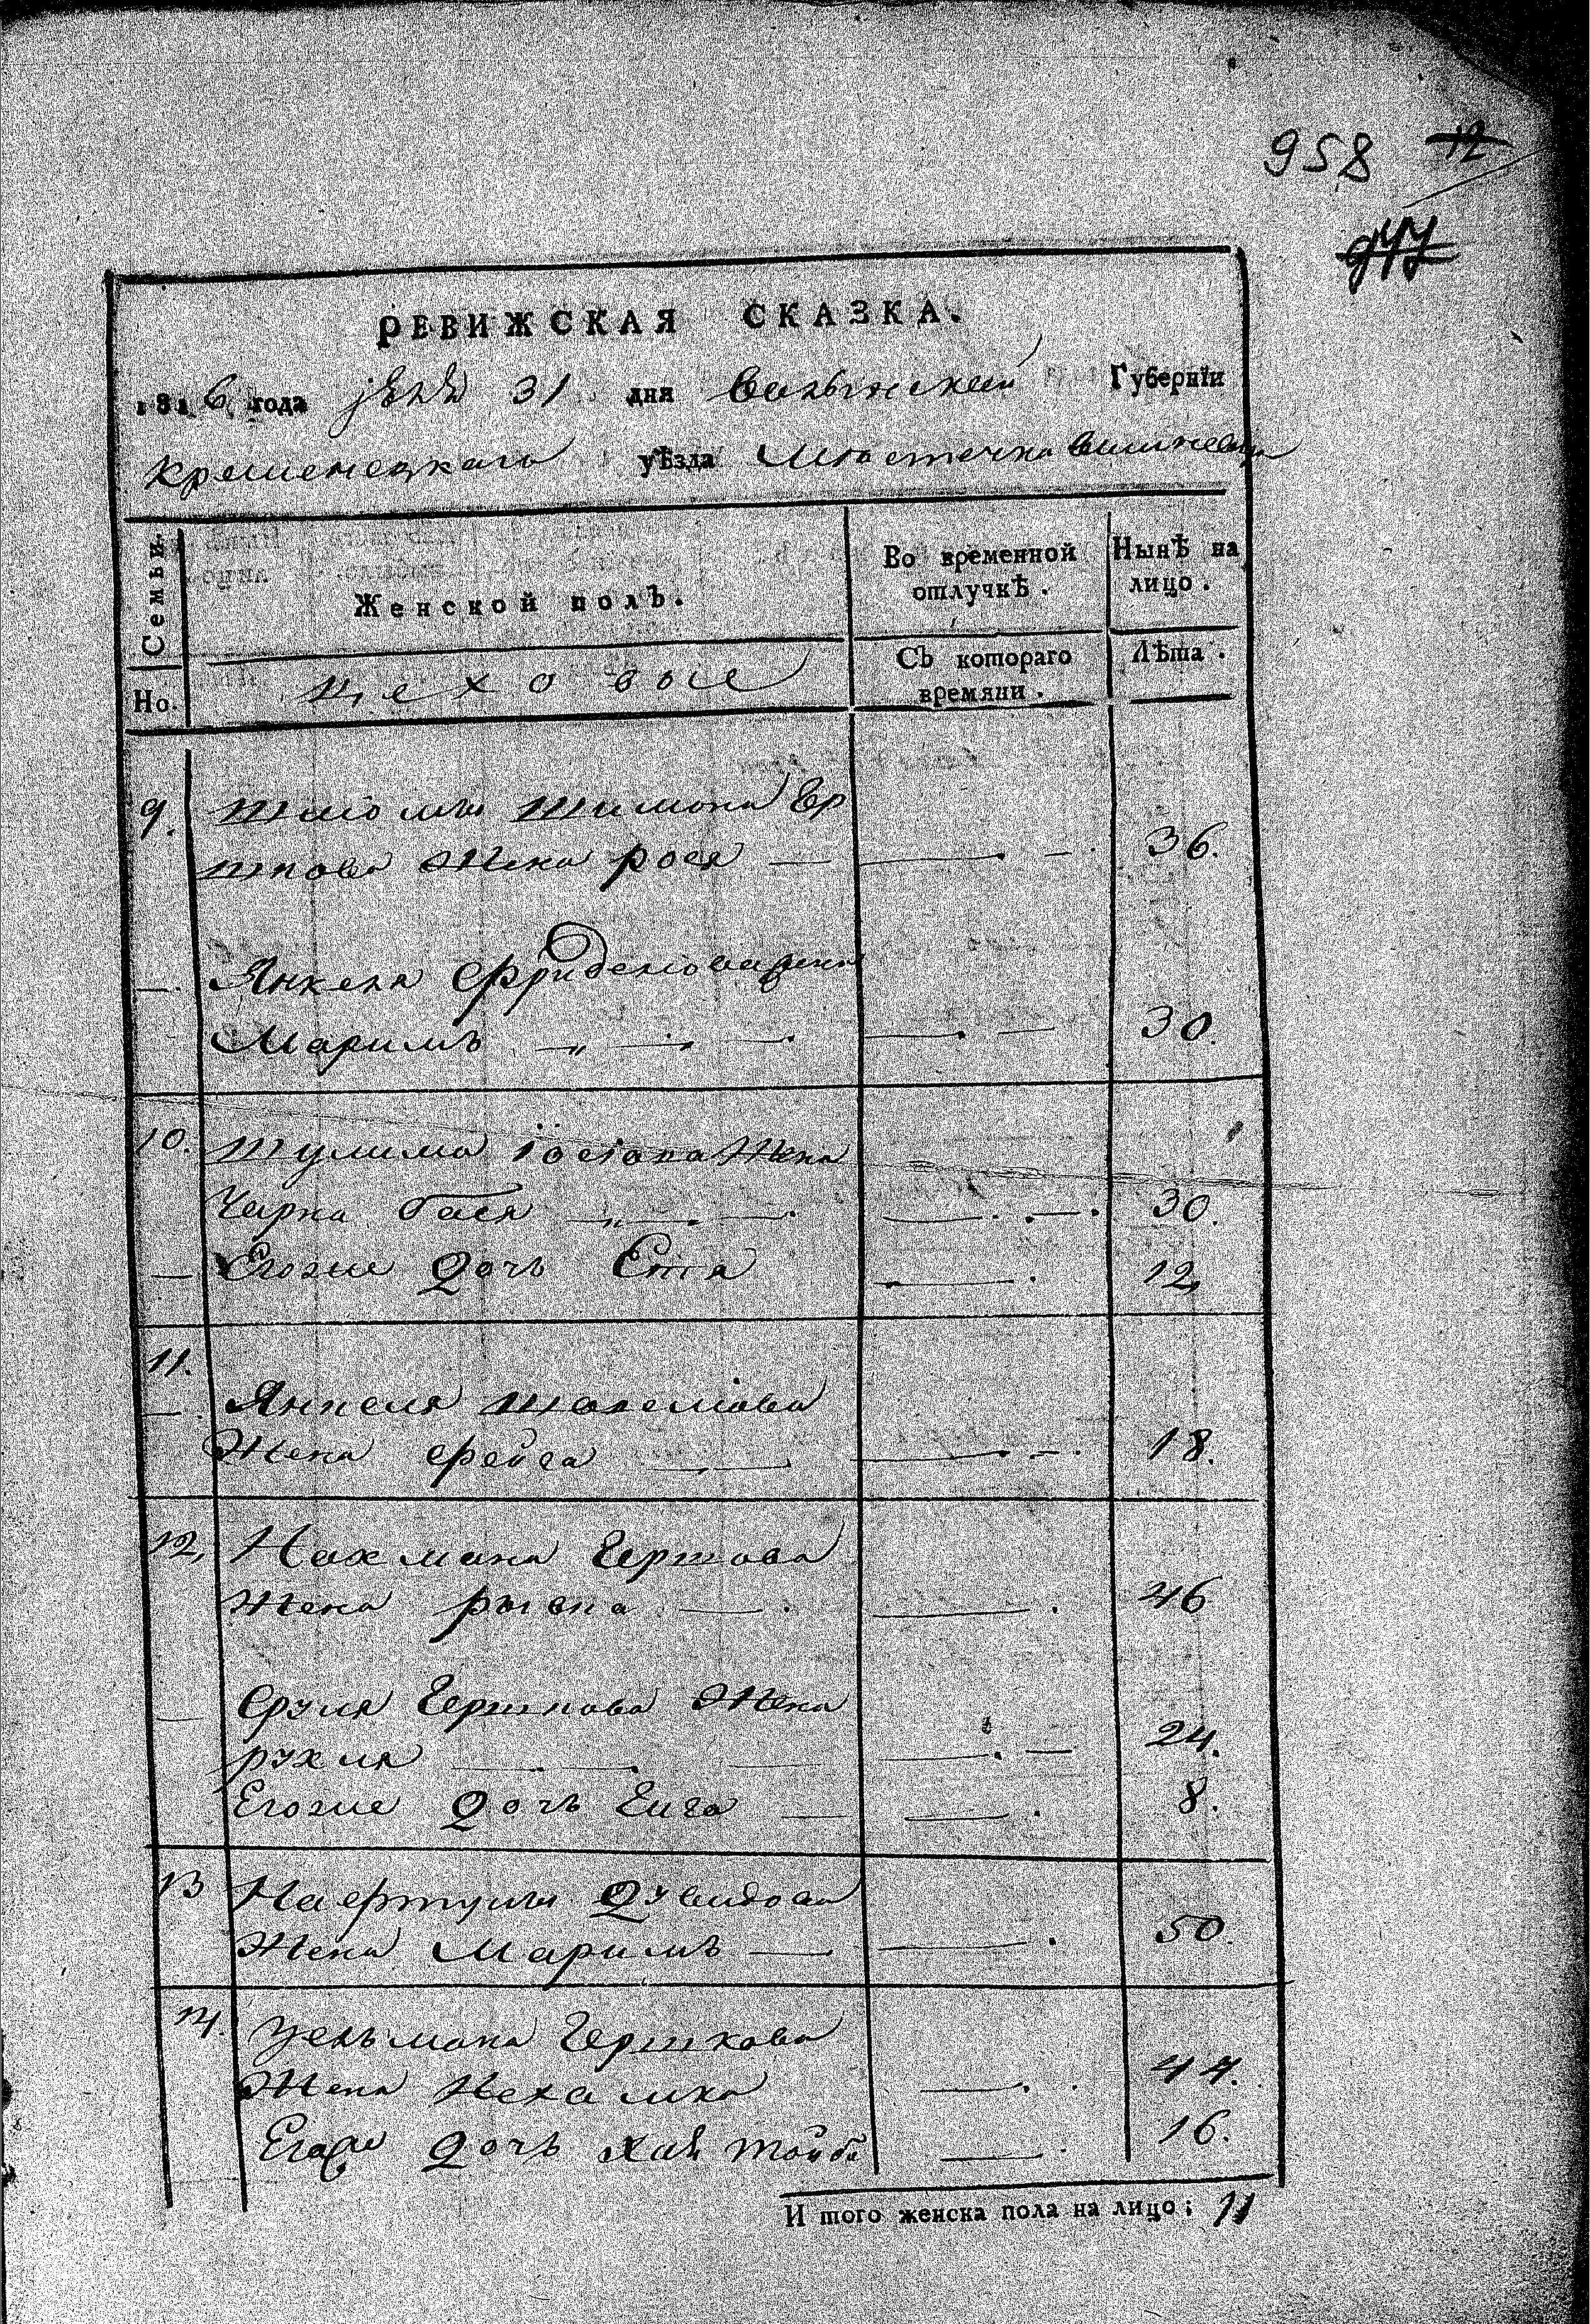 958 12
РЕВИЖСКАЯ СКАЗКА.
1816 года 31 дня Волынской Губернїи
Кременецкаго уѣзда Местечка Вишневца
Семьи.
Женской полъ.
Во временной отлучкѣ.
Нынѣ на лицо.
Но.
цеховые
Съ котораго времяни.
Лѣта.
9. Шлiомы Шимона Гер
шкова жена рося — 36.
—. Янкеля Фриделiова жена
Маримъ — 30.
10. Шулима Iосiова жена
Чарна бася — 30.
— Егоже дочь Етя 12.
11.
— Янкеля Шолемова
Жена Фейга — 18.
12, Нахмана Гершова
Жена рывка — 46
— Сруля Гершкова Жена
рухля — 24.
Егоже дочь Гига — 8.
13 Нафтулы Дувидова
Жена Маримъ — 50.
14. Зельмана Гершкова
Жена Нехамка — 44.
Егоже дочь хая тойба 16.
И того женска пола на лицо; 11